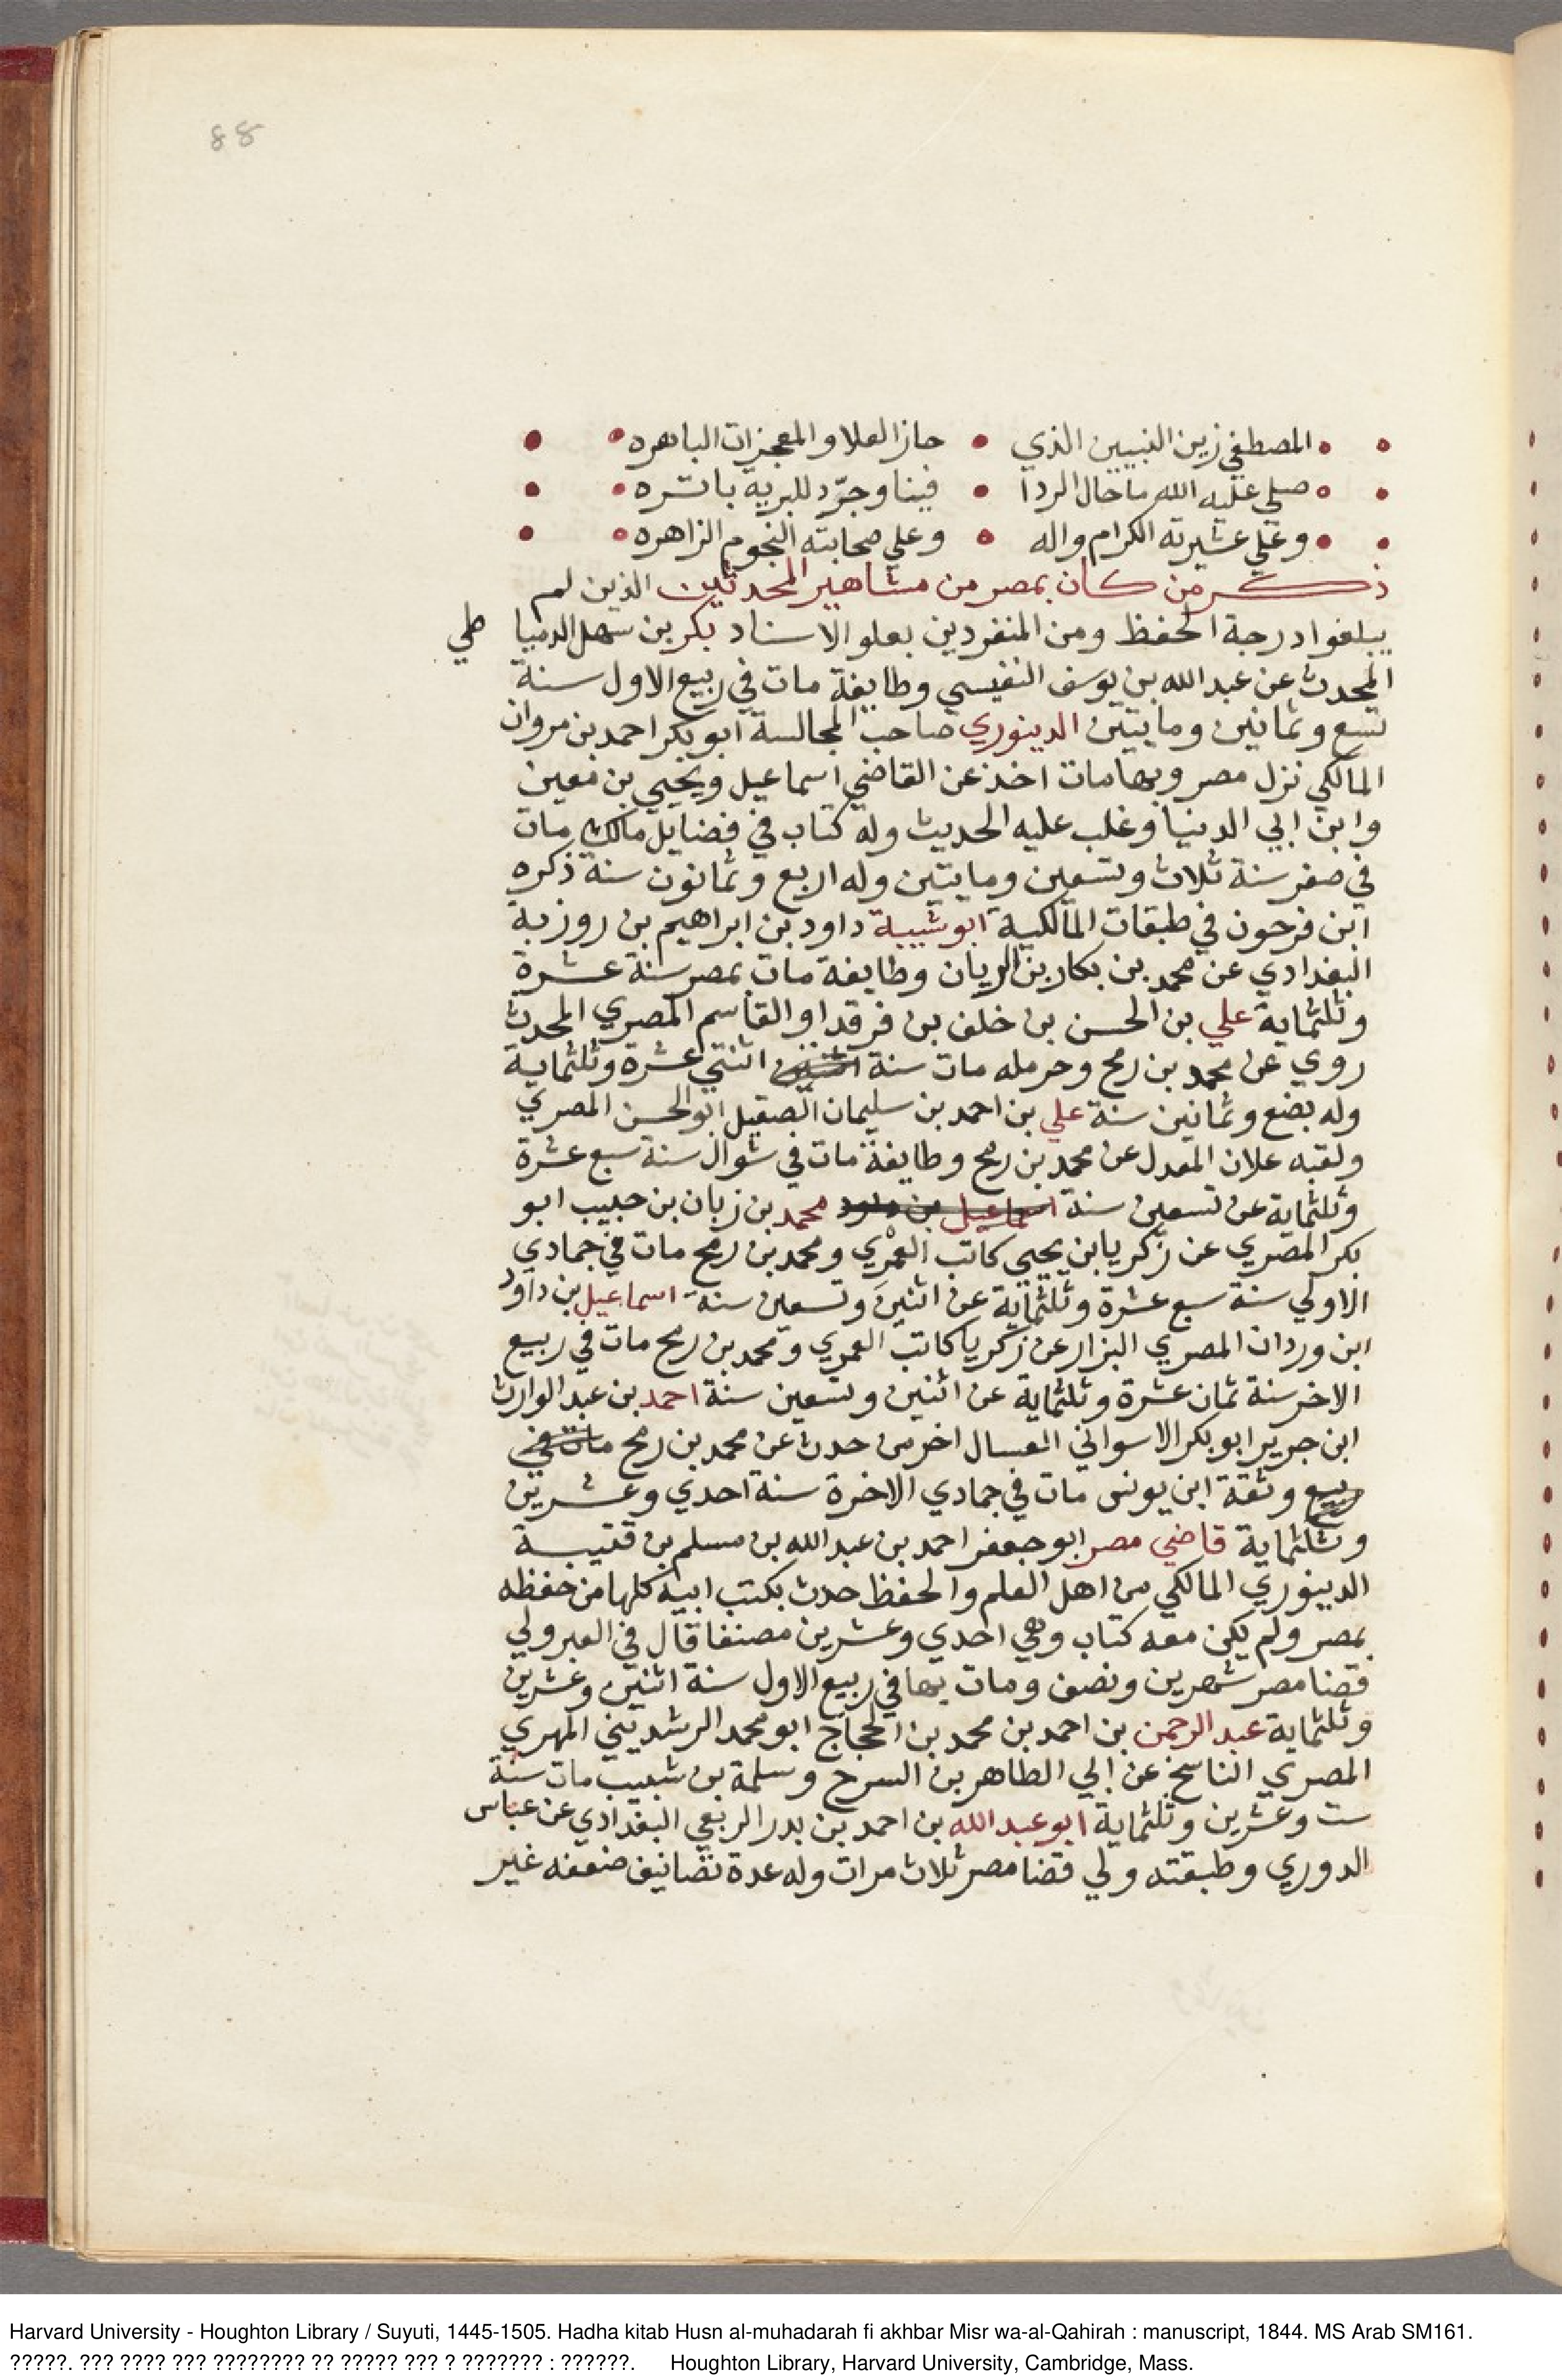 88
المصطفي زين النبيين الذي • حاز العلا والمعجزات الباهره
صلي عليه الله ما حال الردا • فينا وجرّد للبرية باتره
وعلي عشيرته الكرام واله • وعلي صحابته النجوم الزاهره
ذكر من كان بمصر من مشاهير المحدثين الذين لم
يبلغوا درجة الحفظ ومن المنفردين بعلو الاسناد بكر بن سهل الدميا طي
المحدث عن عبد الله بن يوسف النفيسي وطايفة مات في ربيع الاول سنة
تسع وثمانين ومايتين الدينوري صاحب المجالسة ابو بكر احمد بن مروان
المالكي نزل مصر وبها مات اخذ عن القاضي اسماعيل ويحيي بن معين
وابن ابي الدنيا وغلب عليه الحديث وله كتاب في فضايل مالك مات
في صفر سنة ثلاث وتسعين ومايتين وله اربع وثمانون سنة ذكره
ابن فرحون في طبقات المالكية ابو شيبة داود بن ابراهيم بن روزبة
البغدادي عن محمد بن بكار بن الريان وطايفة مات بمصر سنة عشرة
وثلثماية علي بن الحسن بن خلف بن فرقد ابو القاسم المصري المحدث
روي عن محمد بن رمح وحرمله مات سنة اثنتي عشرة وثلثماية
وله بضع وثمانين سنة علي بن احمد بن سليمان الصقيل ابو الحسن المصري
ولقبه علان المعدل عن محمد بن رمح وطايفة مات في شوال سنة سبع عشرة
وثلثماية عن تسعين سنة اسماعيل بن داود محمد بن زبان بن حبيب ابو
بكر المصري عن زكريا بن يحيي كاتب العمري ومحمد بن رمح مات في جمادي
الاولي سنة سبع عشرة وثلثماية عن اثنين وتسعين سنة اسماعيل بن داود
ابن وردان المصري البزار عن زكريا كاتب العمري ومحمد بن رمح مات في ربيع
الاخر سنة ثمان عشرة وثلثماية عن اثنين وتسعين سنة احمد بن عبد الوارث
ابن جرير ابو بكر الاسواني العسال اخر من حدث عن محمد بن رمح مات في
ربيع وثقة ابن يونس مات في جمادي الاخرة سنة احدي وعشرين
وثلثماية قاضي مصر ابو جعفر احمد بن عبد الله بن مسلم بن قتيبة
الدينوري المالكي من اهل العلم والحفظ حدث بكتب ابيه كلها من حفظه
بمصر ولم يكن معه كتاب وهي احدي وعشرين مصنفا قال في العبر ولي
قضا مصر شهرين ونصف ومات بها في ربيع الاول سنة اثنين وعشرين
وثلثماية عبد الرحمن بن احمد بن محمد بن الحجاج ابو محمد الرشديني المهري
المصري الناسخ عن ابي الطاهر بن السرح وسلمة بن شبيب مات سنة
ست وعشرين وثلثماية ابو عبد الله بن احمد بن بدر الربعي البغدادي عن عباس
الدوري وطبقته ولي قضا مصر ثلاث مرات وله عدة تصانيف ضعفه غير
Harvard University - Houghton Library / Suyuti, 1445-1505. Hadha kitab Husn al-muhadarah fi akhbar Misr wa-al-Qahirah : manuscript, 1844. MS Arab SM161.
?????. ??? ???? ??? ???????? ?? ????? ??? ? ??????? : ??????. Houghton Library, Harvard University, Cambridge, Mass.